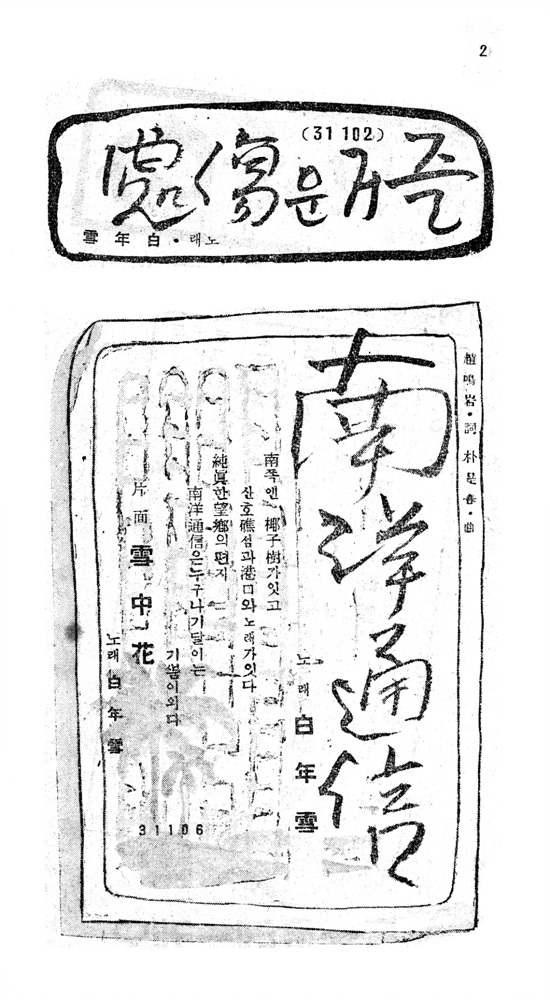 2
(31102)
즐거운 傷處
노래・白年雪
趙鳴岩・詞 朴是春・曲
南洋通信
노래 白年雪
南쪽엔 椰子樹가잇고
산호礁섬과港口와노래가잇다
純眞한望鄕의편지
南洋通信은누구나기달이는
기쁨이외다
片面 雪中花
노래 白年雪
31106